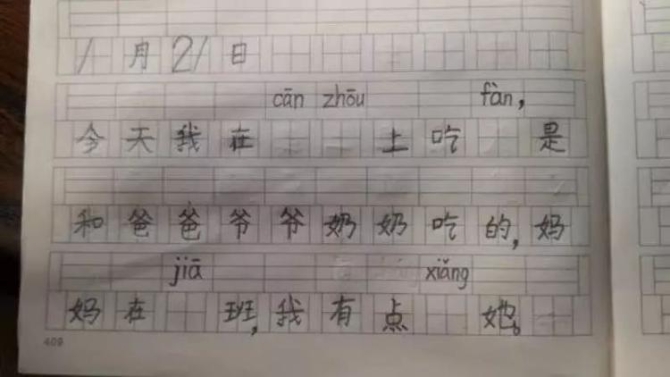 1月21日
cān zhōu fàn,
今天我在上吃是
和爸爸爷爷奶奶吃的,妈
jiā xiǎng
妈在班,我有点她。
409